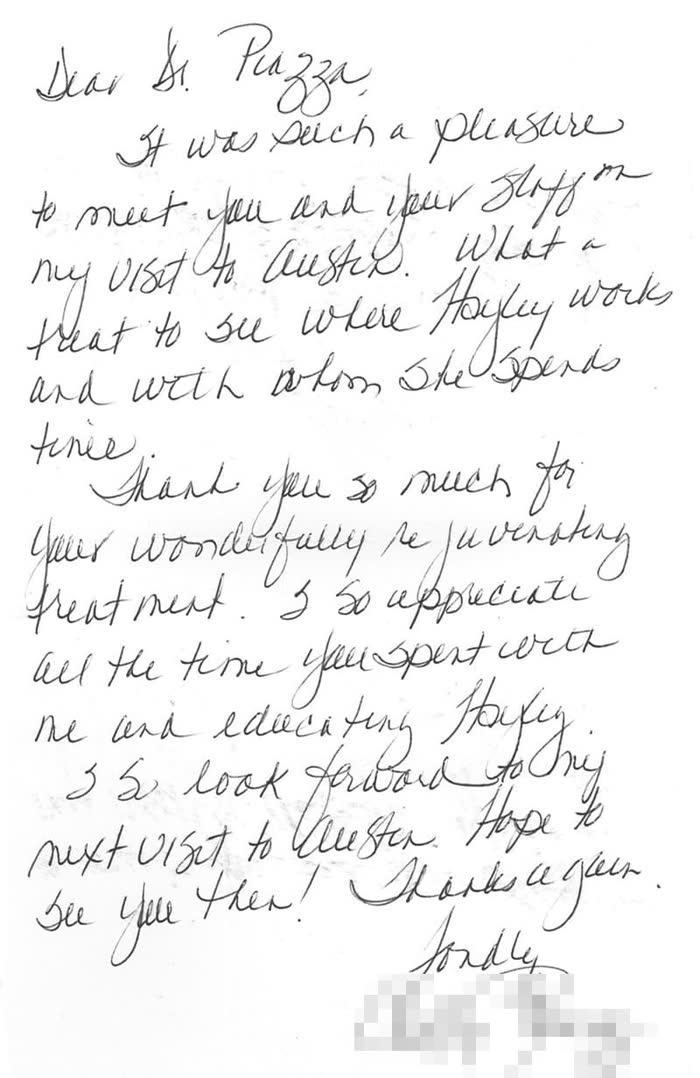 Dear Dr. Piazza,
It was such a pleasure
to meet you and your staff on
my visit to Austin. What a
treat to see where Hayley works
and with whom she spends
time.
Thank you so much for
your wonderfully rejuvenating
treatment. I so appreciate
all the time you spent with
me and educating Hayley.
I so look forward to my
next visit to Austin. Hope to
see you then! Thanks again.
Fondly